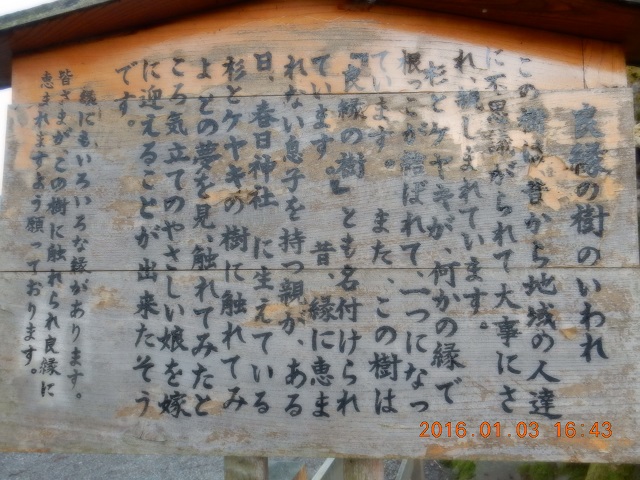 良縁の樹のいわれ
この樹は、昔から地域の人達
に不思議がられて大事にさ
れ、親しまれています。
杉とケヤキが、何かの縁で
根っこが結ばれて、一つになっ
ています。 また、この樹は
『良縁の樹』とも名付けられ
ています。 昔、縁に恵ま
れない息子を持つ親が、ある
日、春日神社 に生えている
杉とケヤキの樹に触れてみ
よ との夢を見、触れてみたと
ころ気立てのやさしい娘を嫁
に迎えることが出来たそう
です。
縁にもいろいろな縁があります。
皆さまがこの樹に触れられ良縁に
恵まれますよう願っております。
2016.01.03 16:43